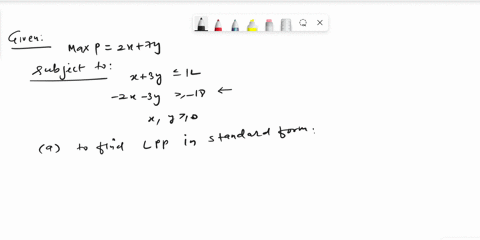 Given:
Max P = 2x+7y
Subject to:
x+3y ≤ 12
-2x-3y ≥ -18 ←
x, y ≥ 0
(a) to find LPP in standard form: